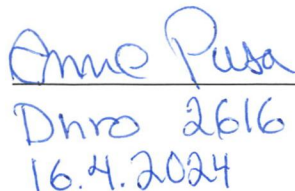 Anne Pusa
Dnro 2616
16.4.2024